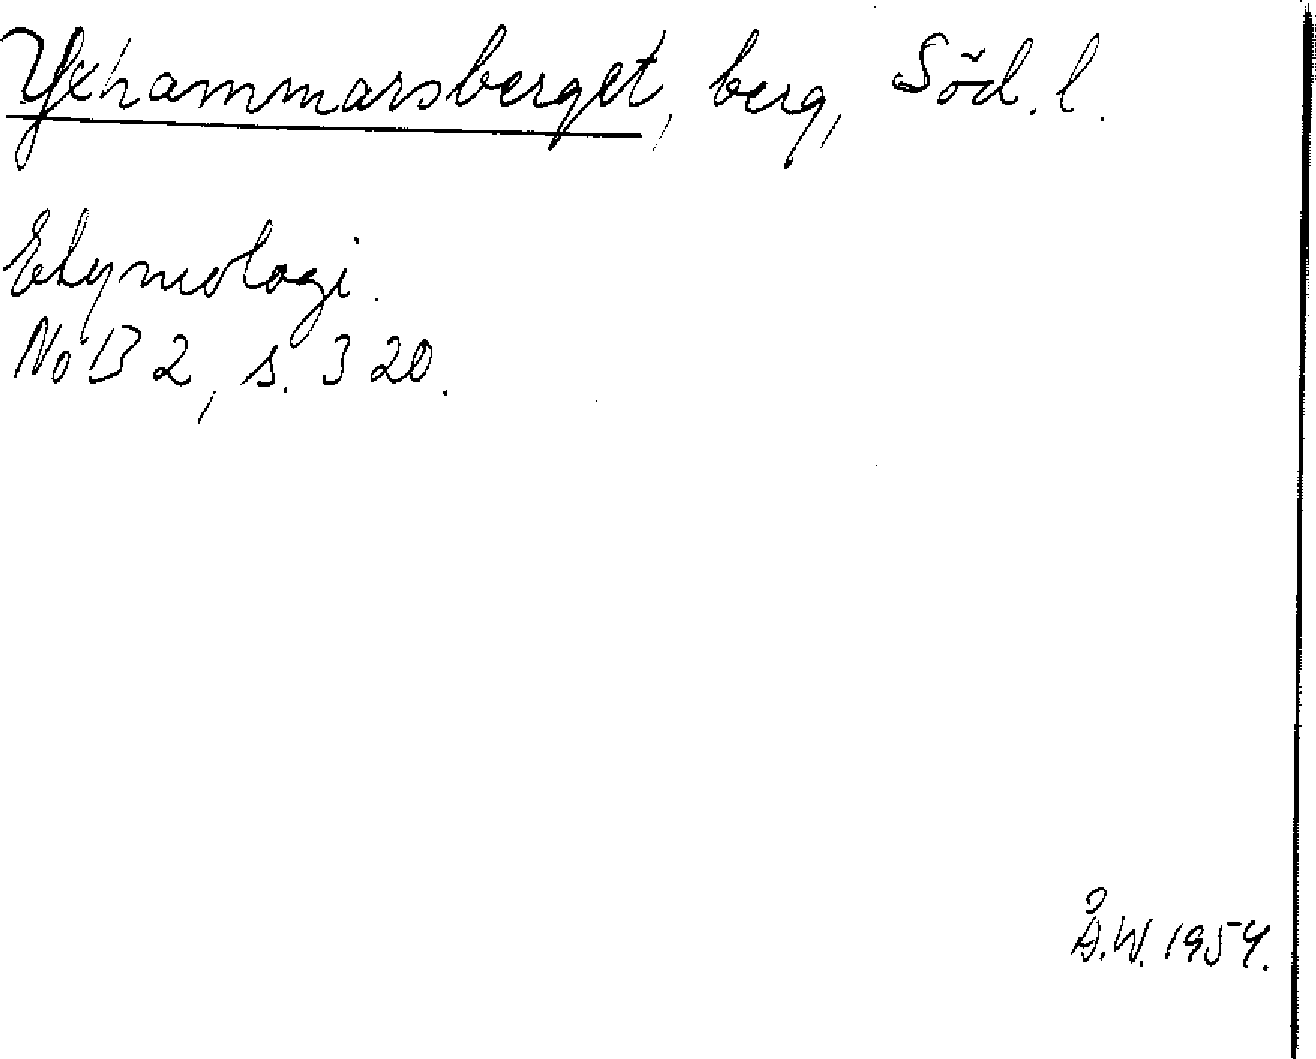 Yxhammarsberget, berg, Söd. l.
Etymologi.
NoB 2, s. 320.
Å.W. 1954.